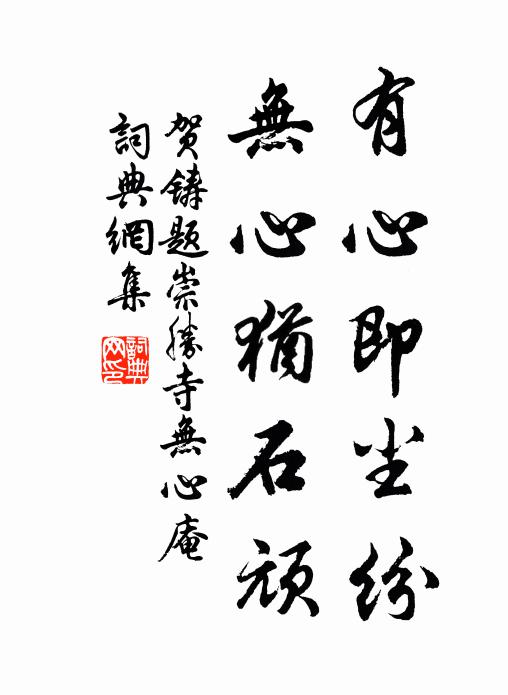 有心即尘纷
無心猶石顽
贺鑄题崇勝寺無心庵
詞典網集
詞典网印